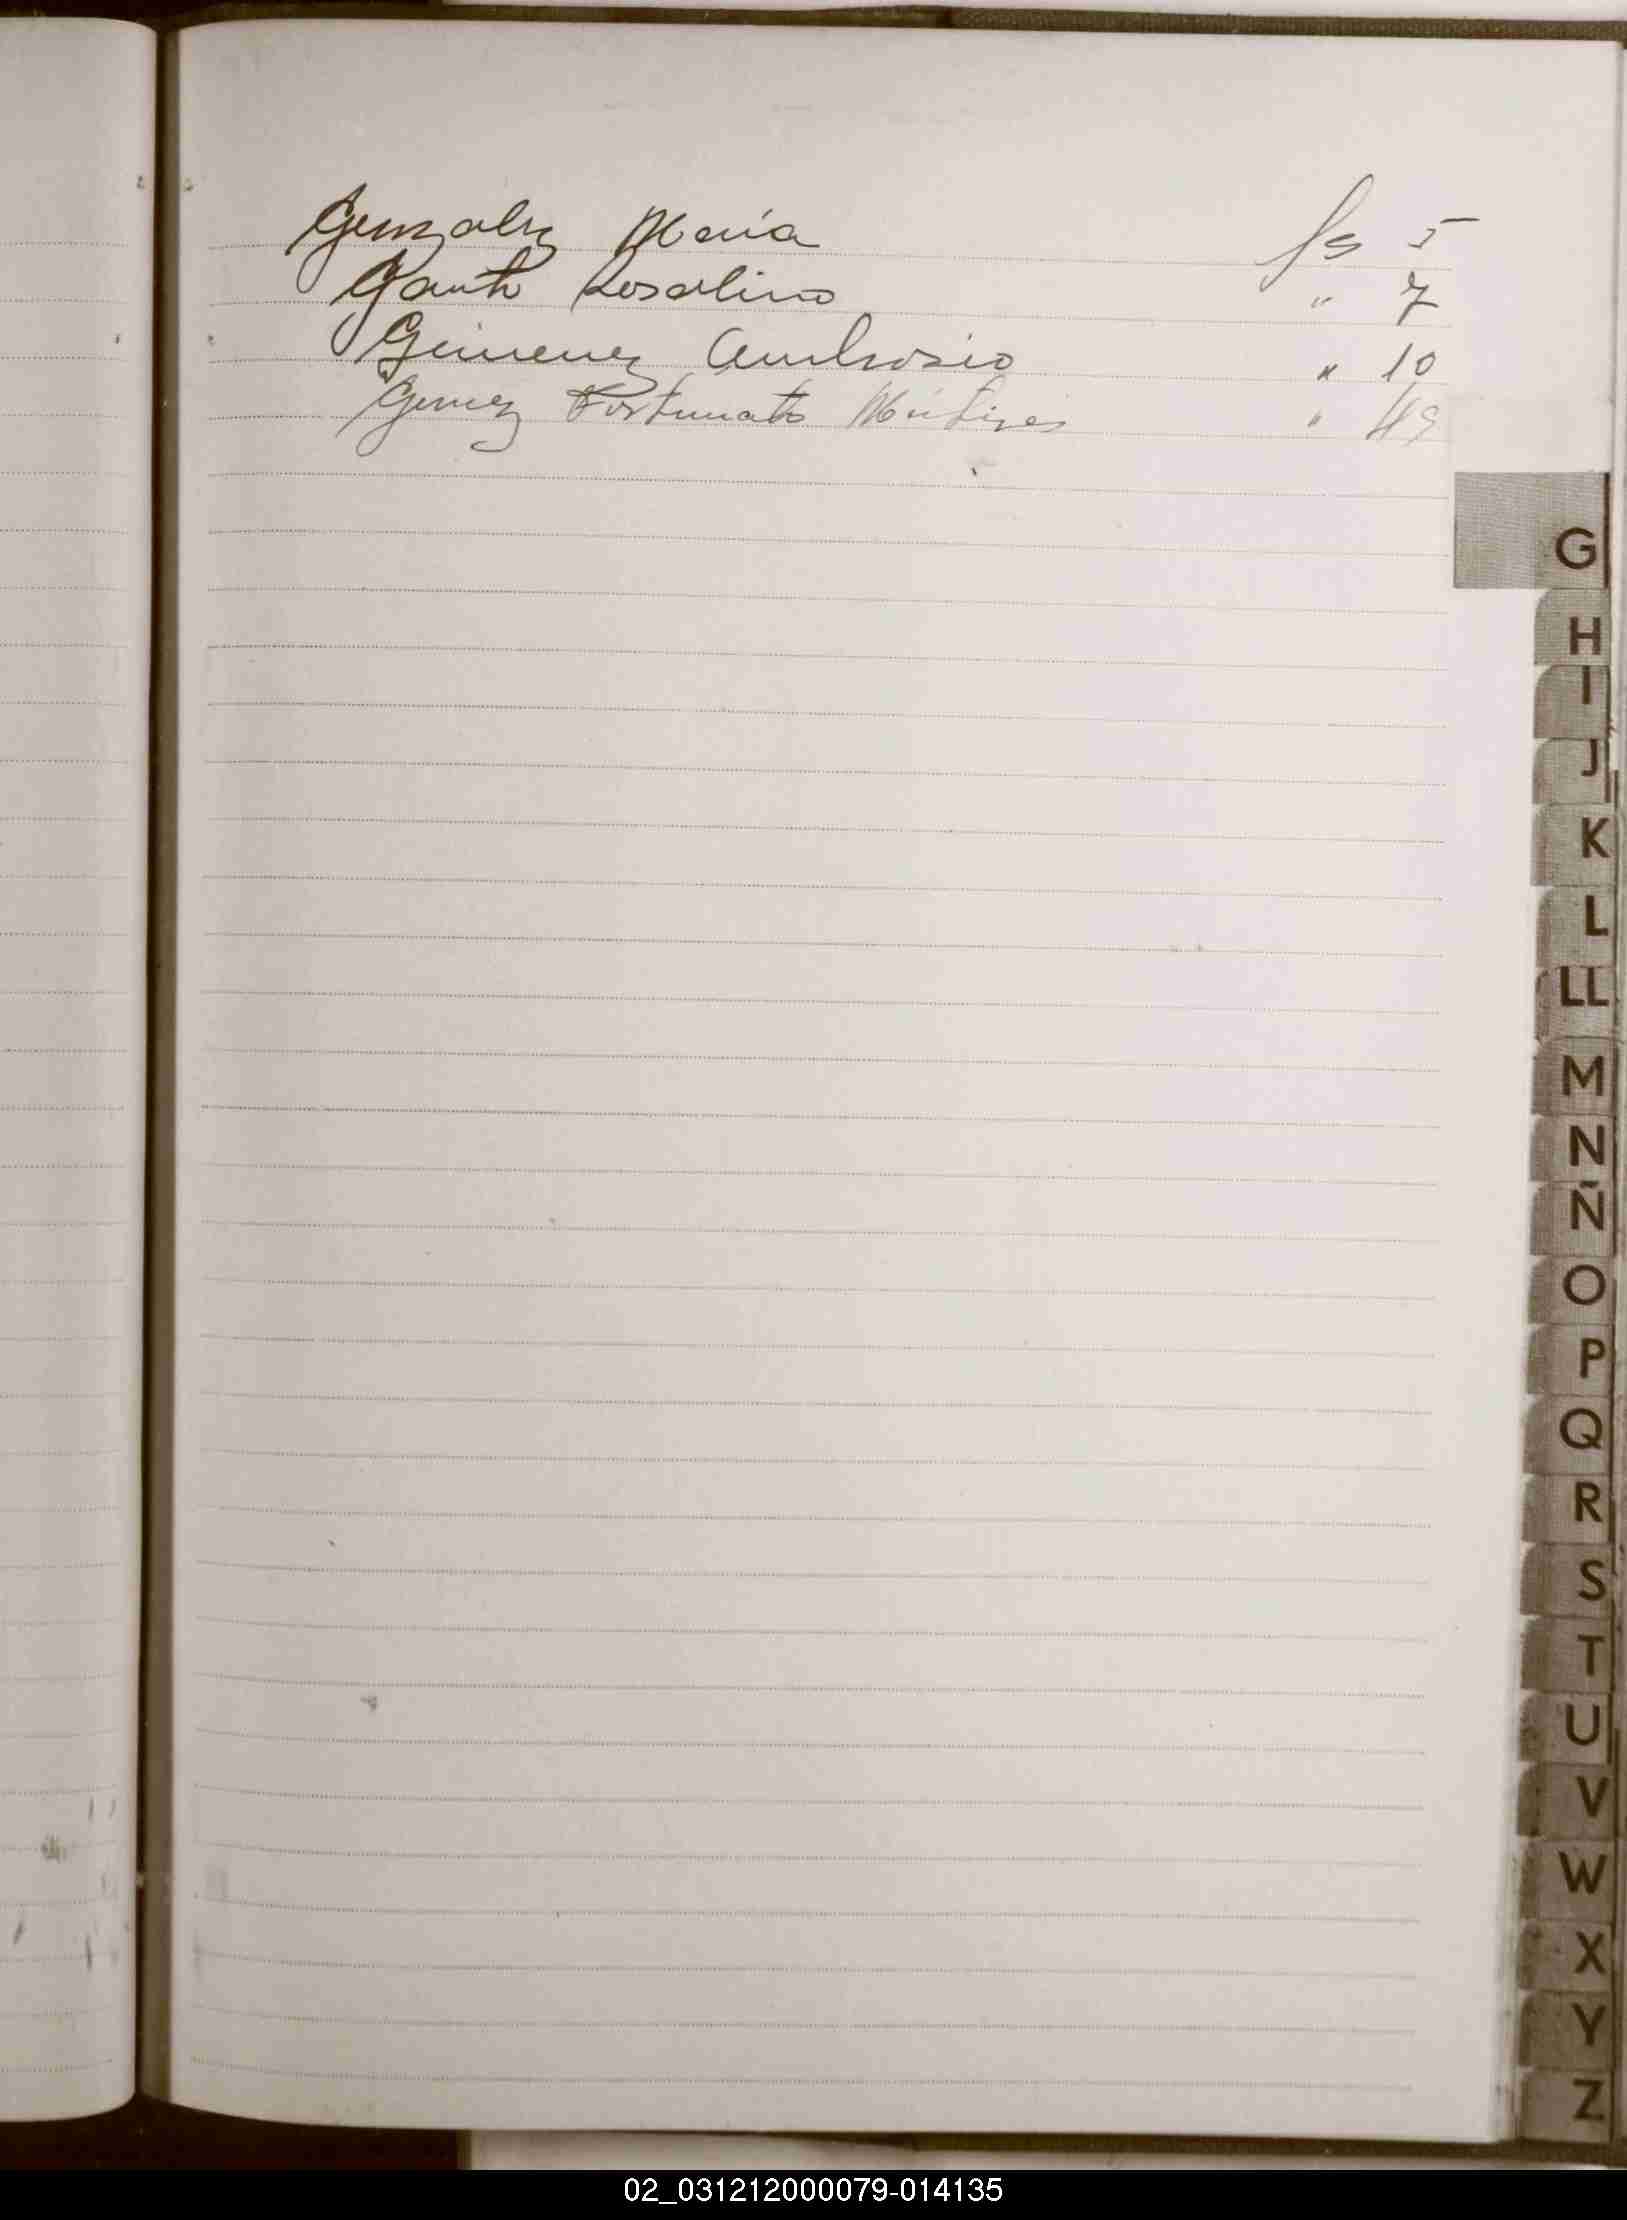 Gonzalez María fs 5
Gauto Rosalino " 7
Gimenez Ambrosio " 10
Gomez Fortunato " 49
G
H
I
J
K
L
LL
M
N
Ñ
O
P
Q
R
S
T
U
V
W
X
Y
Z
02_031212000079-014135